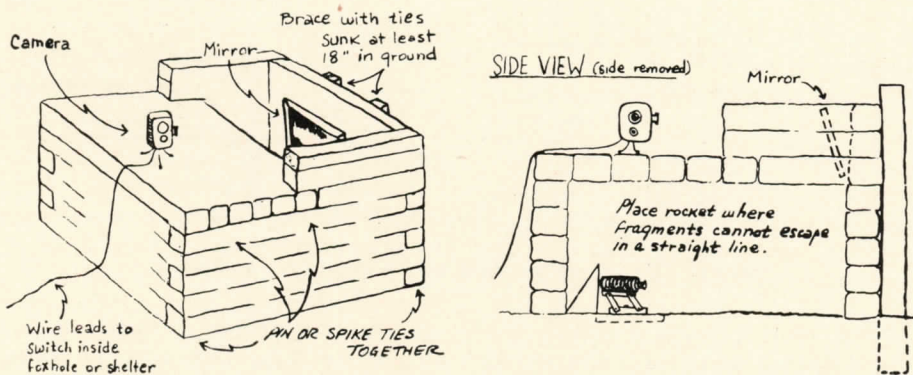 Brace with ties
sunk at least
18" in ground
Camera
Mirror
Wire leads to
switch inside
foxhole or shelter
PIN OR SPIKE TIES
TOGETHER
SIDE VIEW (side removed)
Mirror
Place rocket where
fragments cannot escape
in a straight line.